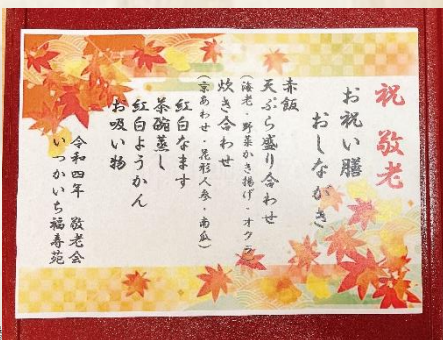 祝 敬老
お祝い膳
おしながき
赤飯
天ぷら盛り合わせ
(海老・野菜かき揚げ・オクラ)
炊き合わせ
(京あわせ・花形人参・南瓜)
紅白なます
茶碗蒸し
紅白ようかん
お吸い物
令和四年 敬老会
いつかいち福寿苑